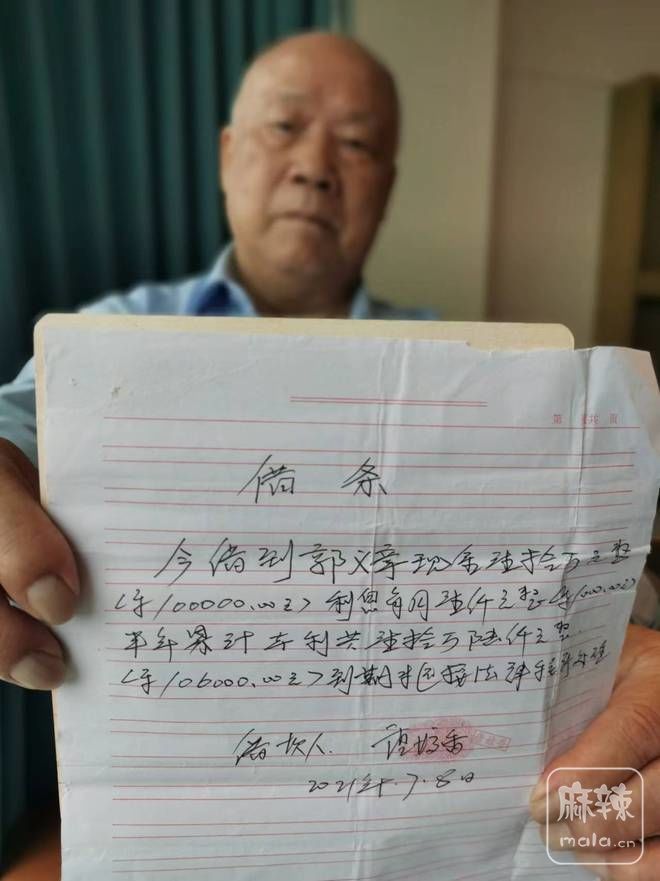 第 页
借 条
今借到郭义章现金壹拾万元整
<¥100000.00元>利息每月壹仟元整<¥1000.00元>
半年累计本利共壹拾万陆仟元整.
<¥106000.00元>到期未按法律程序办理
借款人. 香
2021年.7.8日
麻辣
mala.cn